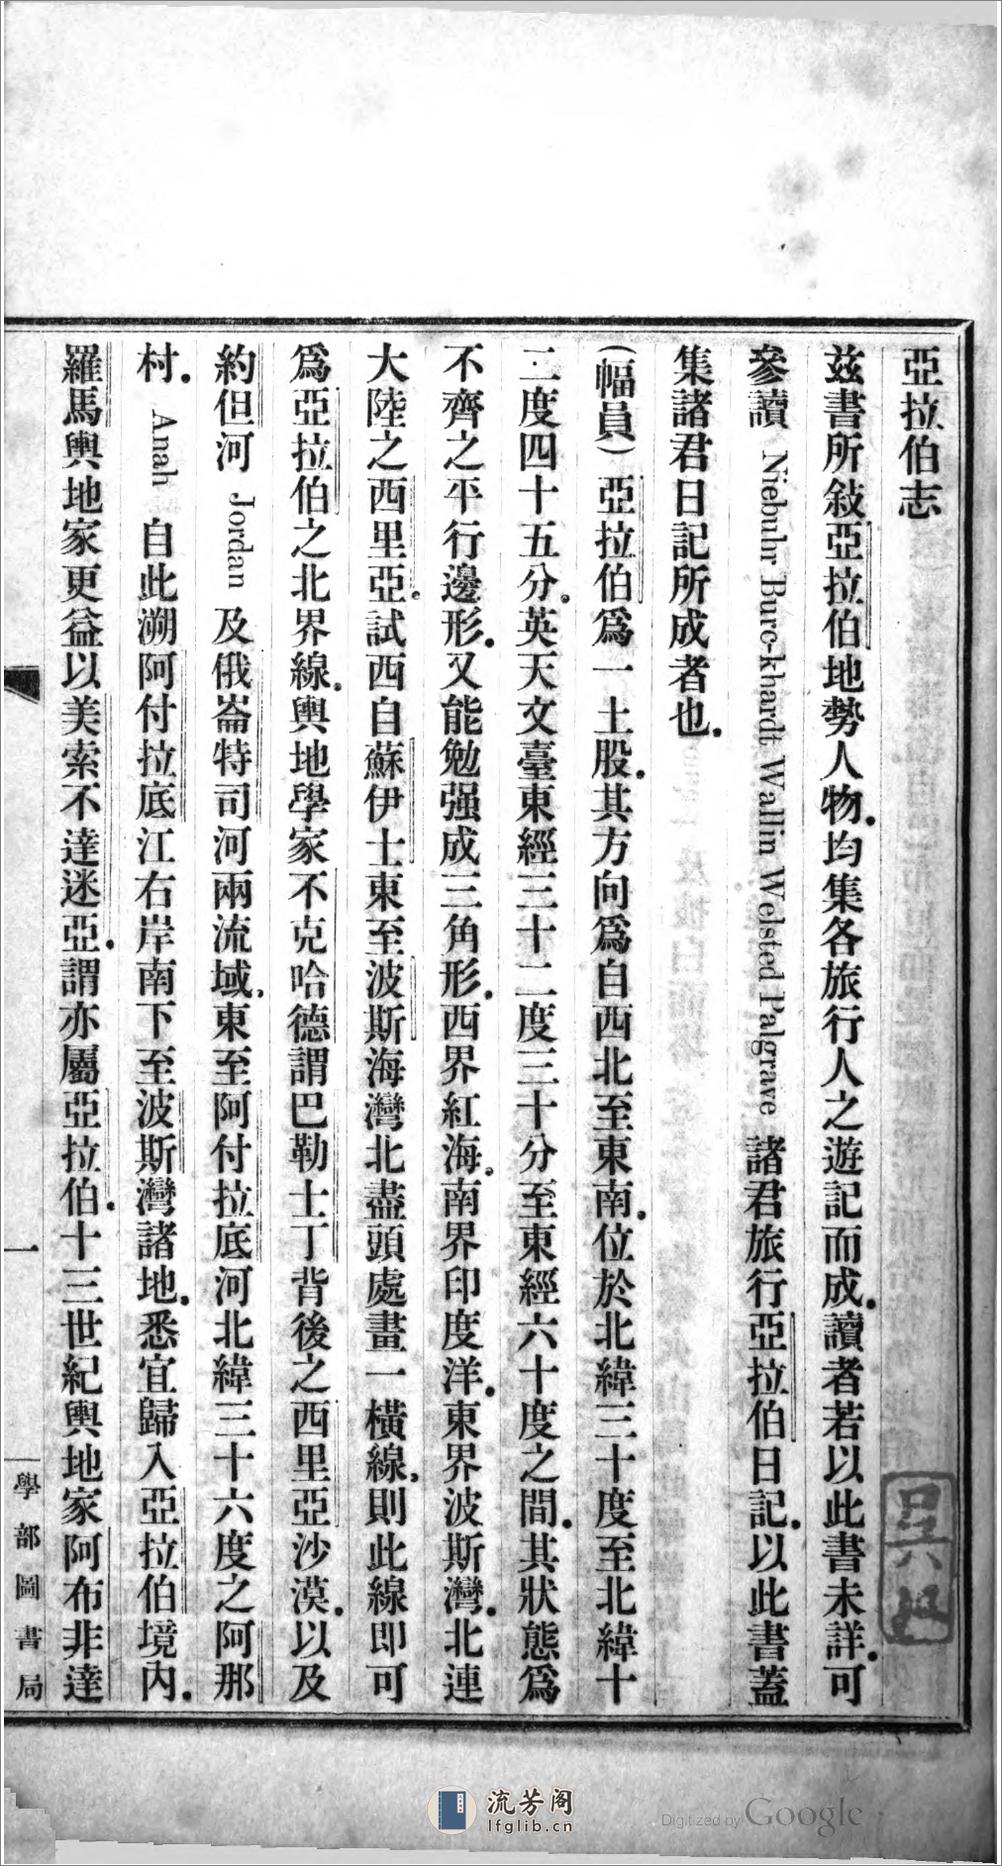 亞拉伯志
茲書所敍亞拉伯地勢人物.均集各旅行人之遊記而成.讀者若以此書未詳.可
參讀 Niebuhr Burc-khardt Wallin Welsted Palgrave 諸君旅行亞拉伯日記.以此書蓋
集諸君日記所成者也.
(幅員)亞拉伯爲一土股.其方向爲自西北至東南.位於北緯三十度至北緯十
二度四十五分.英天文臺東經三十二度三十分至東經六十度之間.其狀態爲
不齊之平行邊形.又能勉强成三角形.西界紅海.南界印度洋.東界波斯灣.北連
大陸之西里亞.試西自蘇伊士東至波斯海灣北盡頭處畫一橫線.則此線即可
爲亞拉伯之北界線.輿地學家不克哈德謂巴勒士丁背後之西里亞沙漠.以及
約但河 Jordan 及俄崙特司河兩流域.東至阿付拉底河北緯三十六度之阿那
村. Anah 自此溯阿付拉底江右岸南下至波斯灣諸地.悉宜歸入亞拉伯境內.
羅馬輿地家更益以美索不達迷亞.謂亦屬亞拉伯.十三世紀輿地家阿布非達
一
學部圖書局
流芳阁
lfglib.cn
Digitized by Google